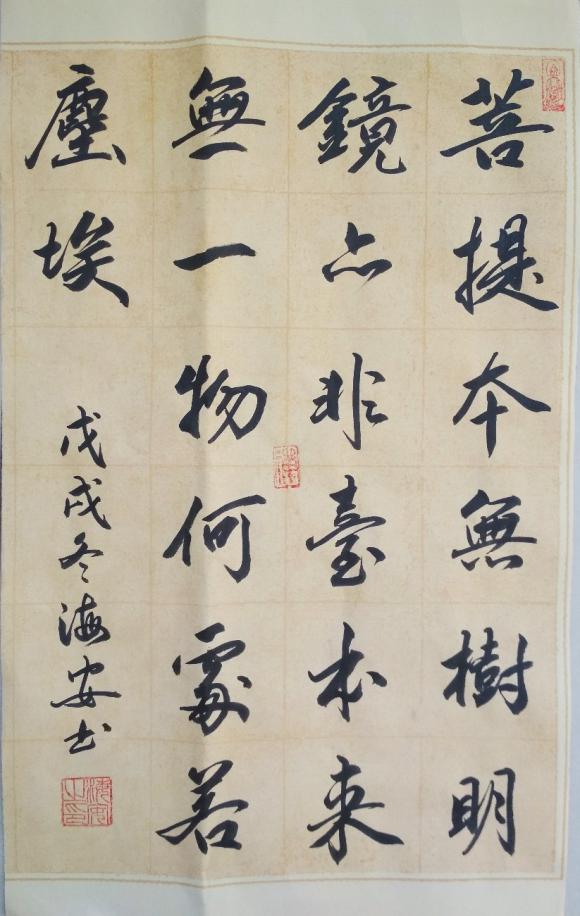 菩提本無樹明
鏡亦非臺本来
無一物何處若
塵埃
戊戌冬海安书
海安之印